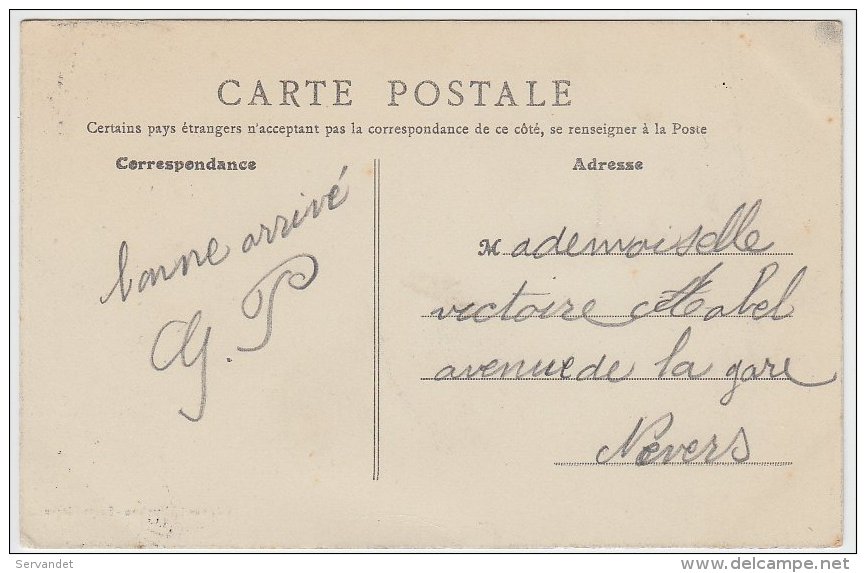 CARTE POSTALE
Certains pays étrangers n'acceptant pas la correspondance de ce côté, se renseigner à la Poste
Correspondance
Adresse
bonne arrivé
G. P
Mademoiselle
victoire Habel
avenue de la gare
Nevers
Servandet
www.delcampe.net